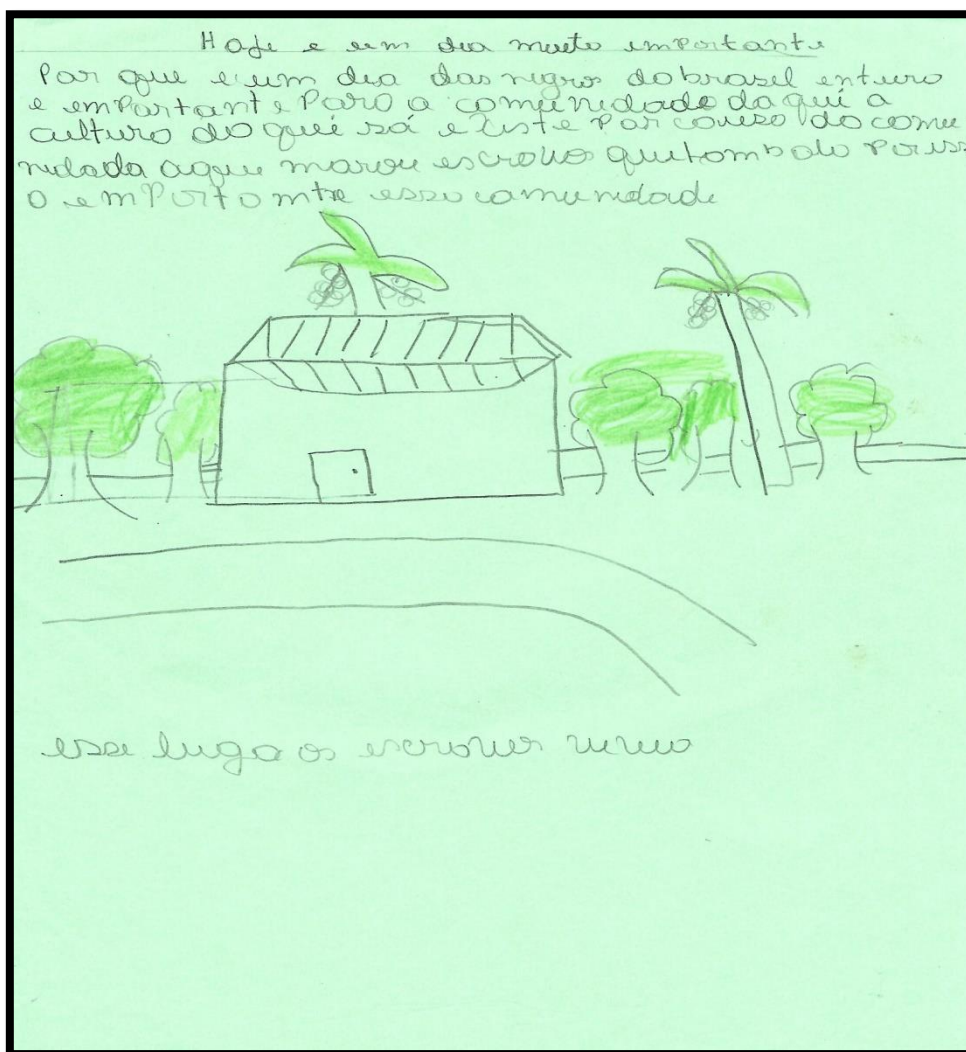 Hoje e um dia muito importante
Por que e um dia dos negros do brasil enturo
e emPortante Para a comunidade da qui a
cultura do qui só existe Por couza do comu
nidada aque marou escravo quilombolo Poriss
o emPortomtre essa comunidade
esse lugo os escravos viveo